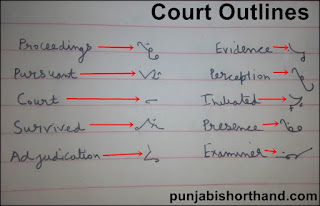 Court Outlines
Proceedings
Evidence
Pursuant
Perception
Court
Initiated
Survived
Presence
Adjudication
Examiner
punjabishorthand.com